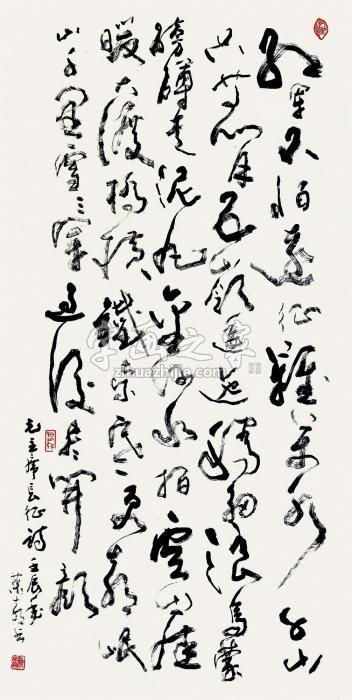 紅軍不怕遠征難萬水千山
只等閑五嶺逶迤騰細浪烏蒙
磅礴走泥丸金沙水拍雲崖
暖大渡橋橫鐵索寒更喜岷
山千里雪三軍過後盡開顏
毛主席長征詩壬辰年
字画之家
zihuazhijia.com